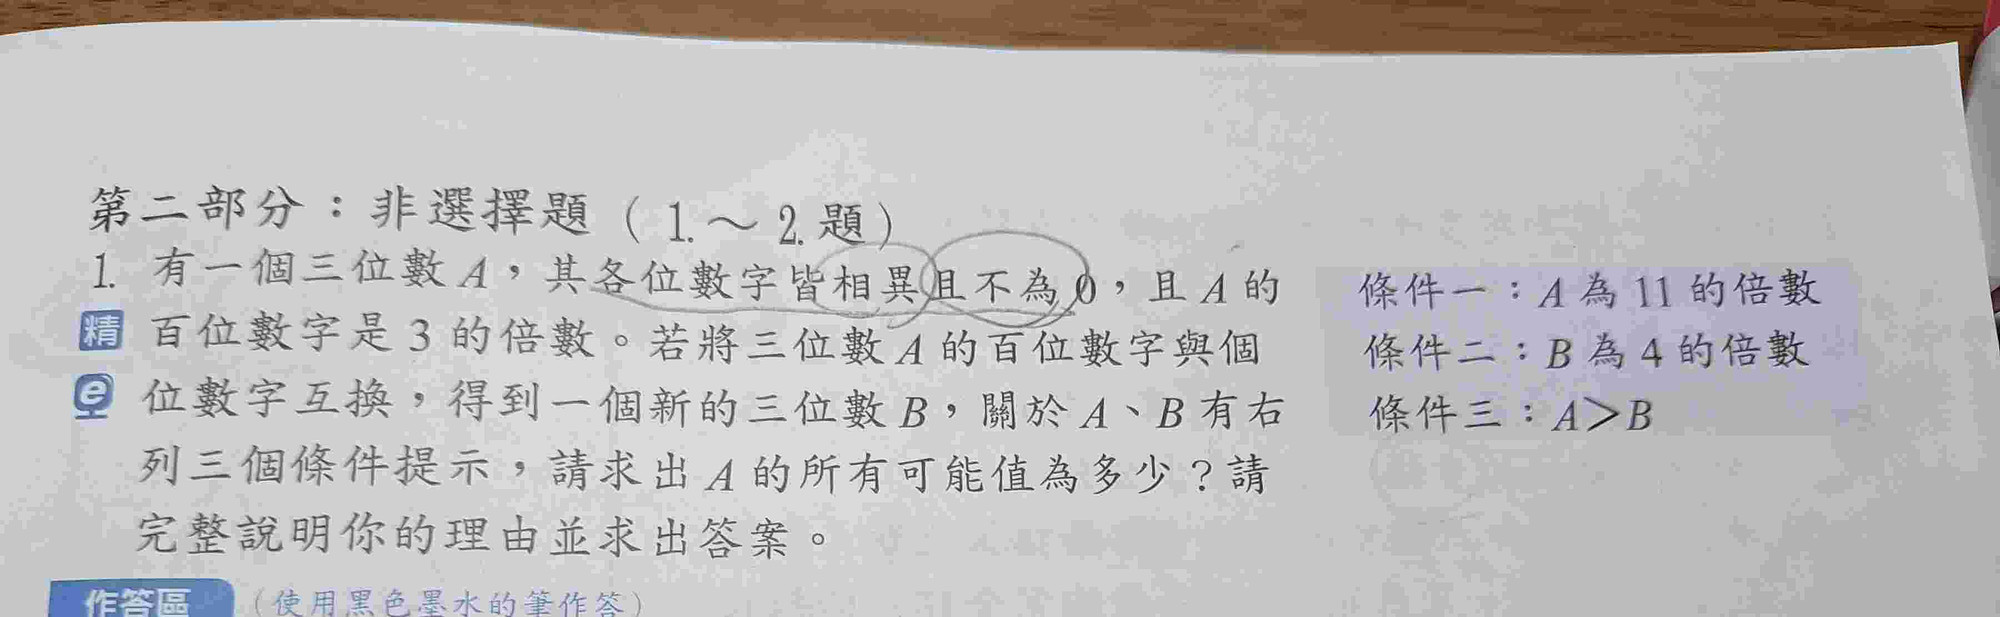 第二部分：非選擇題（1.～2.題）
1. 有一個三位數A，其各位數字皆相異且不為0，且A的
精 百位數字是3的倍數。若將三位數A的百位數字與個
e 位數字互換，得到一個新的三位數B，關於A、B有右
列三個條件提示，請求出A的所有可能值為多少？請
完整說明你的理由並求出答案。
條件一：A為11的倍數
條件二：B為4的倍數
條件三：A＞B
作答區（使用黑色墨水的筆作答）